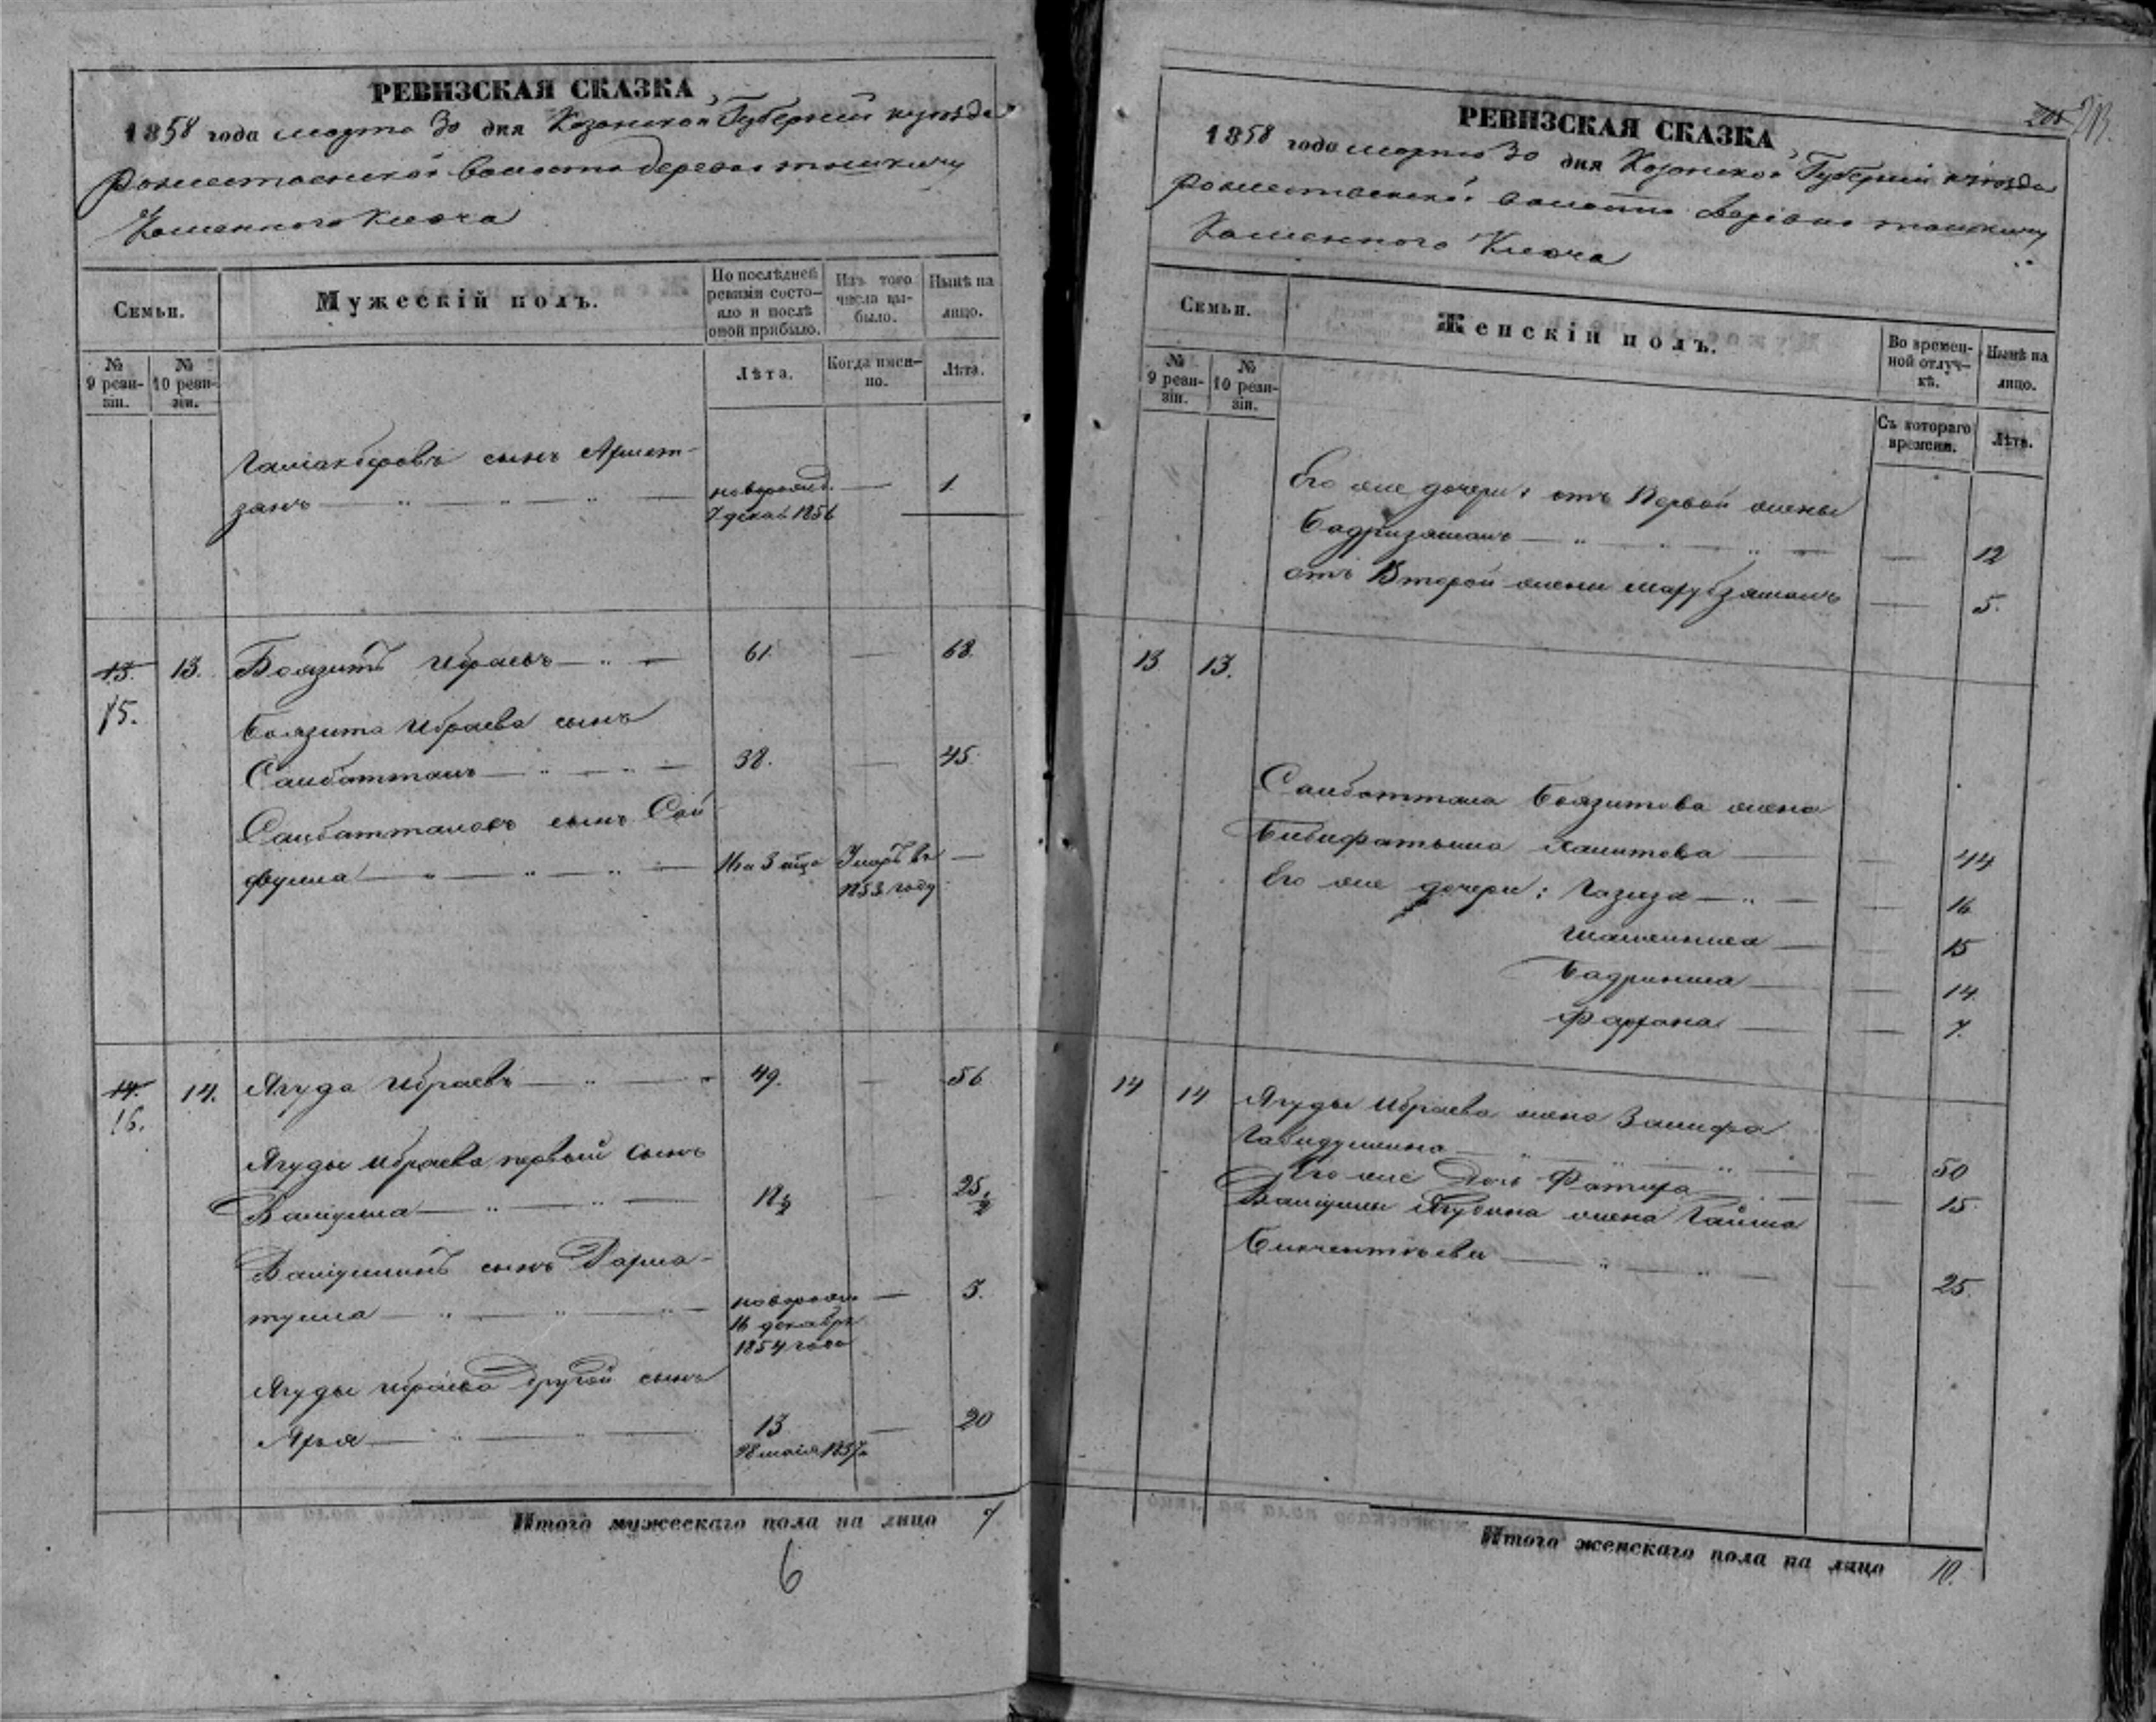 РЕВИЗСКАЯ СКАЗКА
1858 года марта 30 дня Казанской Губернии и уѣзда
Рожественской волости деревни
Каменного Ключа
Семьи.
Мужескій полъ.
По послѣдней ревизіи состояло и послѣ оной прибыло.
Изъ того числа выбыло.
Нынѣ на лицо.
№ 9 ревизіи.
№ 10 ревизіи.
Лѣта.
Когда именно.
Лѣта.
Галіакберовъ сынъ Ахмет-
занъ — новорожд. — 1.
7 декаб 1856
13. 13. Боязитъ Ибраевъ — 61. — 68.
15.
Боязита Ибраева сынъ
Саибаттаlъ — 38. — 45.
Саибатталовъ сынъ Сай
фулла — 14 а 3 Умеръ въ —
1853 году
14. 14. Ягуда Ибраевъ — 49. — 56
16.
Ягуды Ибраева первый сынъ
Валіулла — 18½ — 25½
Валіуллинъ сынъ
тулла — новорожд — 3.
16 декабря
1854 года
Ягуды Ибраева другой сынъ
Яхъя — 13 — 20
28 маія 1837
Итого мужескаго пола на лицо 7
6
РЕВИЗСКАЯ СКАЗКА
1858 года марта 30 дня Казанской Губерніи и уѣзда
Рожественской волости деревни
Каменного Ключа
Семьи.
Женскій полъ.
Во временной отлучкѣ.
Нынѣ на лицо.
№ 9 ревизіи.
№ 10 ревизіи.
Съ котораго времени.
Лѣта.
Его же дочери: отъ Первой жены
Бадризямалъ — 12
отъ Второй жены — 5.
13 13.
Саибаттала Боязитова жена
Бибифатыма Хамитова — 44
Его же дочери: Газиза — 16
— 15
Бадриниса — 14
Фархана — 7.
14 14 Ягуды Ибраева жена Зализа
Габидуллина — 50
Его же Дочь — 15
Валіуллы Ягудина жена Гайша
— 25.
Итого женскаго пола на лицо 10.